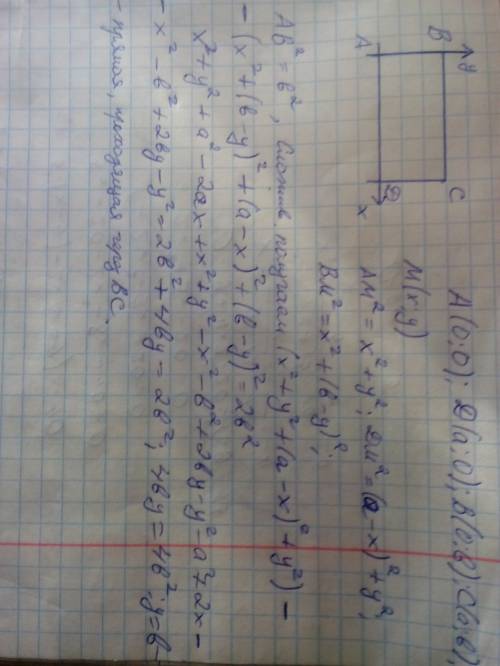 B y C
A D x
A(0;0); D(a;0); B(0;b); C(a;b)
M(x;y)
AM²=x²+y²; DM²=(a-x)²+y²;
BM²=x²+(b-y)²;
AB²=b², Сложив, получаем (x²+y²+(a-x)²+y²)-
-(x²+(b-y)²+(a-x)²+(b-y)²)=2b²
x²+y²+a²-2ax+x²+y²-x²-b²+2by-y²-a²+2ax-
-x²-b²+2by-y²=-2b²+4by=2b²; 4by=4b²; y=b-
-прямая, проходящая через BC.